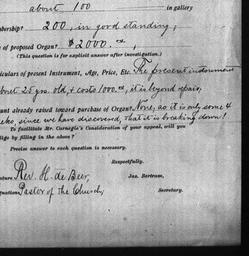 about 100 in gallery
bership? 200, in good standing,
of proposed Organ? $2000.
(This question is for explicit answer after investigation.)
iculars of present Instrument, Age, Price, Etc. The present instrument
about 25 yrs. old, & costs 1000. it is beyond repair,
ount already raised toward purchase of Organ? None, as it is only some 4
eeks, since we have discovered, that it is breaking down!
To facilitate Mr. Carnegie's Consideration of your appeal, will you
lige by filling in the above?
Precise answer to each question is necessary.
Respectfully,
nature Rev. H. de Beer, Jas. Bertram,
Pastor of the Church, Secretary.